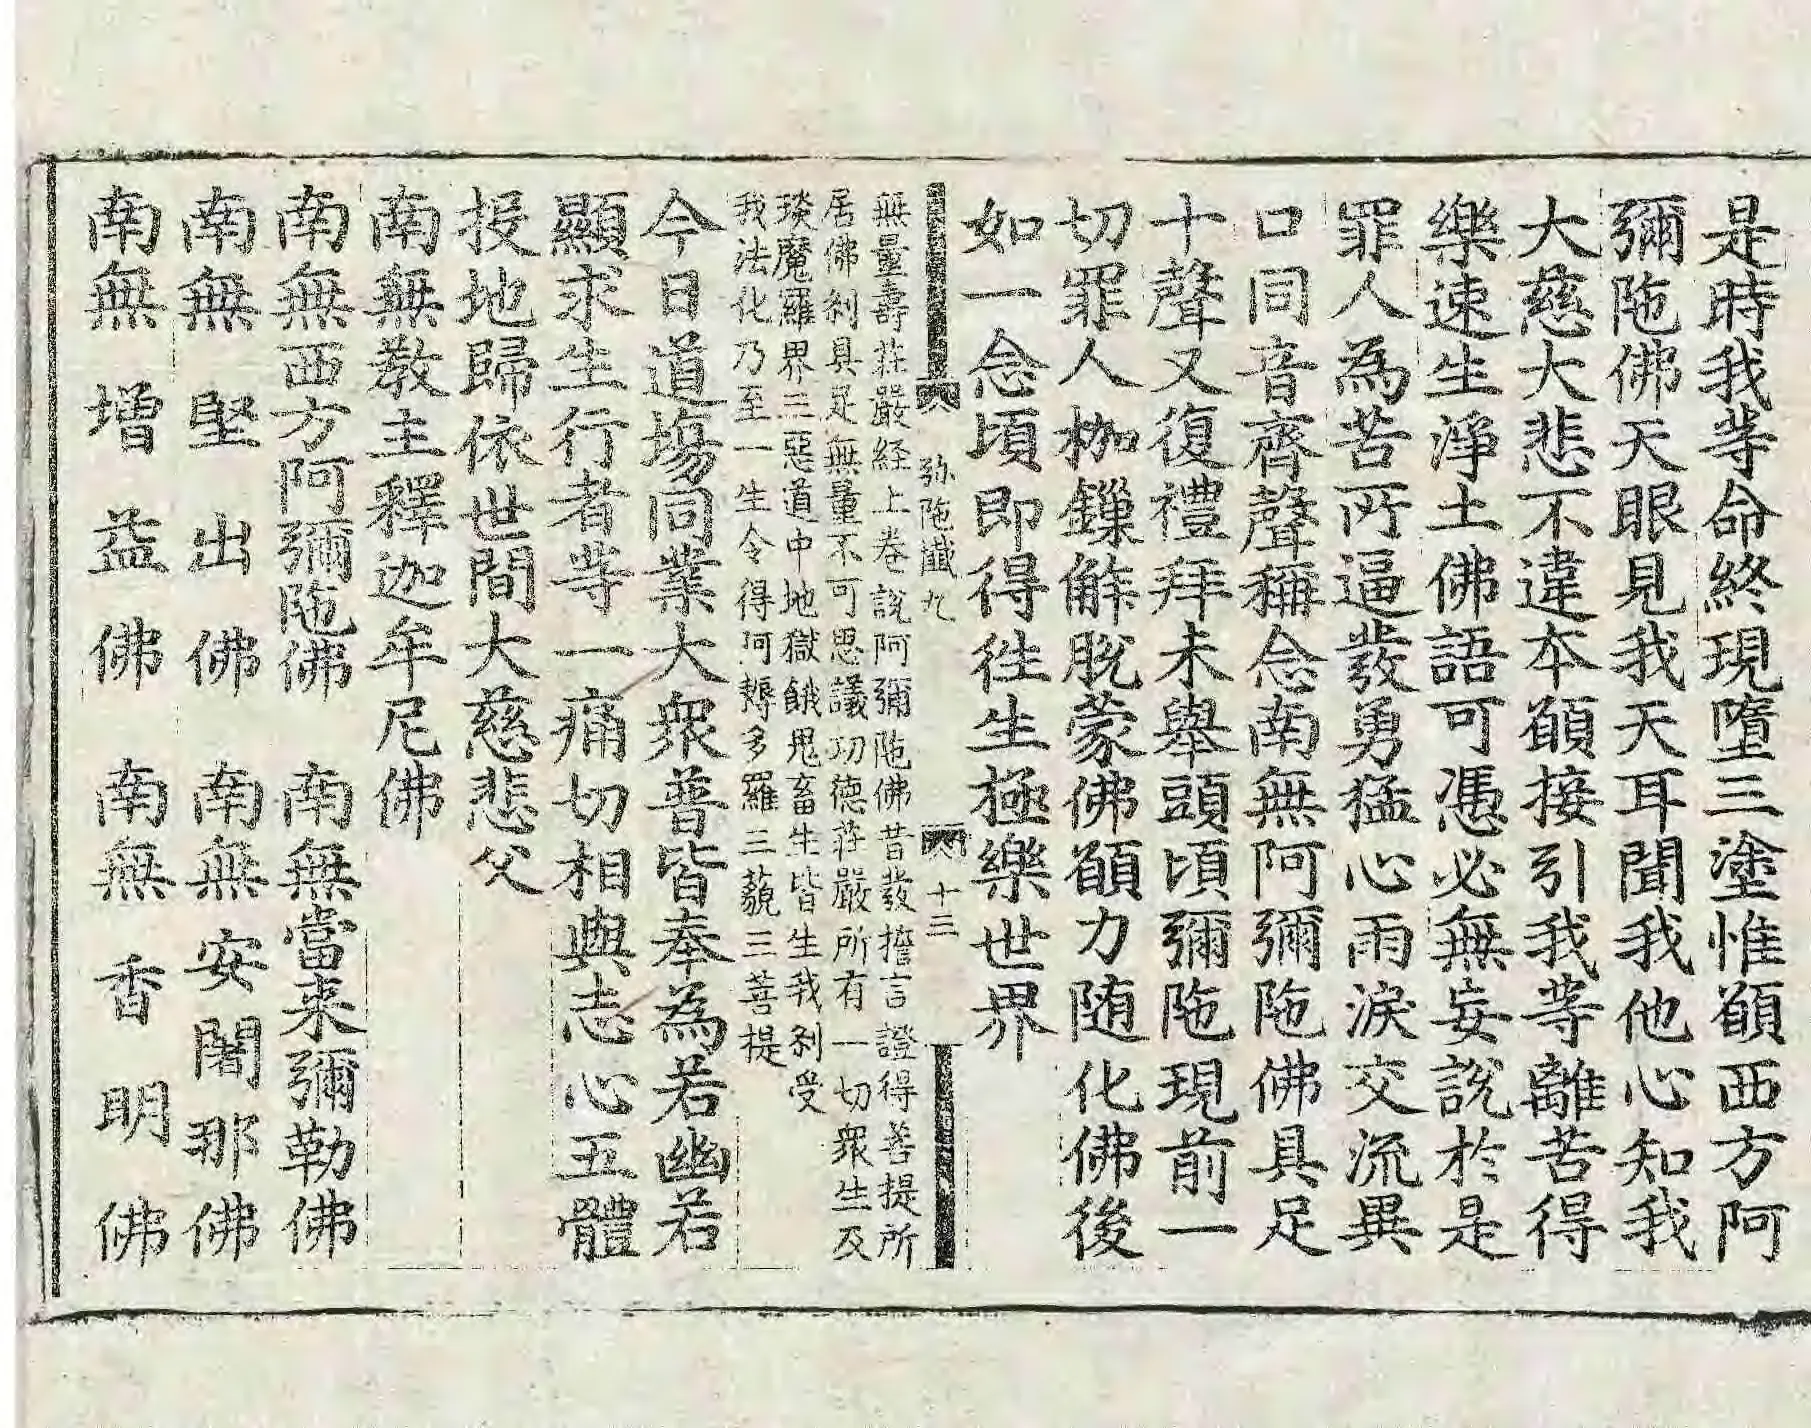 是時我等命終現墮三塗惟願西方阿
彌陁佛天眼見我天耳聞我他心知我
大慈大悲不違本願接引我等離苦得
樂速生淨土佛語可憑必無妄說於是
罪人為苦所逼發勇猛心雨淚交流異
口同音齊聲稱念南無阿彌陁佛具足
十聲又復禮拜未舉頭頃彌陁現前一
切罪人枷鏁解脫蒙佛願力随化佛後
如一念頃即得徃生極樂世界
弥陁懺九 十三
無量壽莊嚴経上卷說阿彌陁佛昔發擔言證得菩提所
居佛刹具足無量不可思議功德莊嚴所有一切衆生及
琰魔羅界三惡道中地獄餓鬼畜生皆生我刹受
我法化乃至一生令得阿耨多羅三藐三菩提
今日道塲同業大衆普皆奉為若幽若
顯求生行者等一痛切相與志心五體
投地歸依世間大慈悲父
南無教主釋迦牟尼佛
南無西方阿彌陁佛 南無當来彌勒佛
南無堅出佛 南無安闍那佛
南無增益佛 南無香明佛